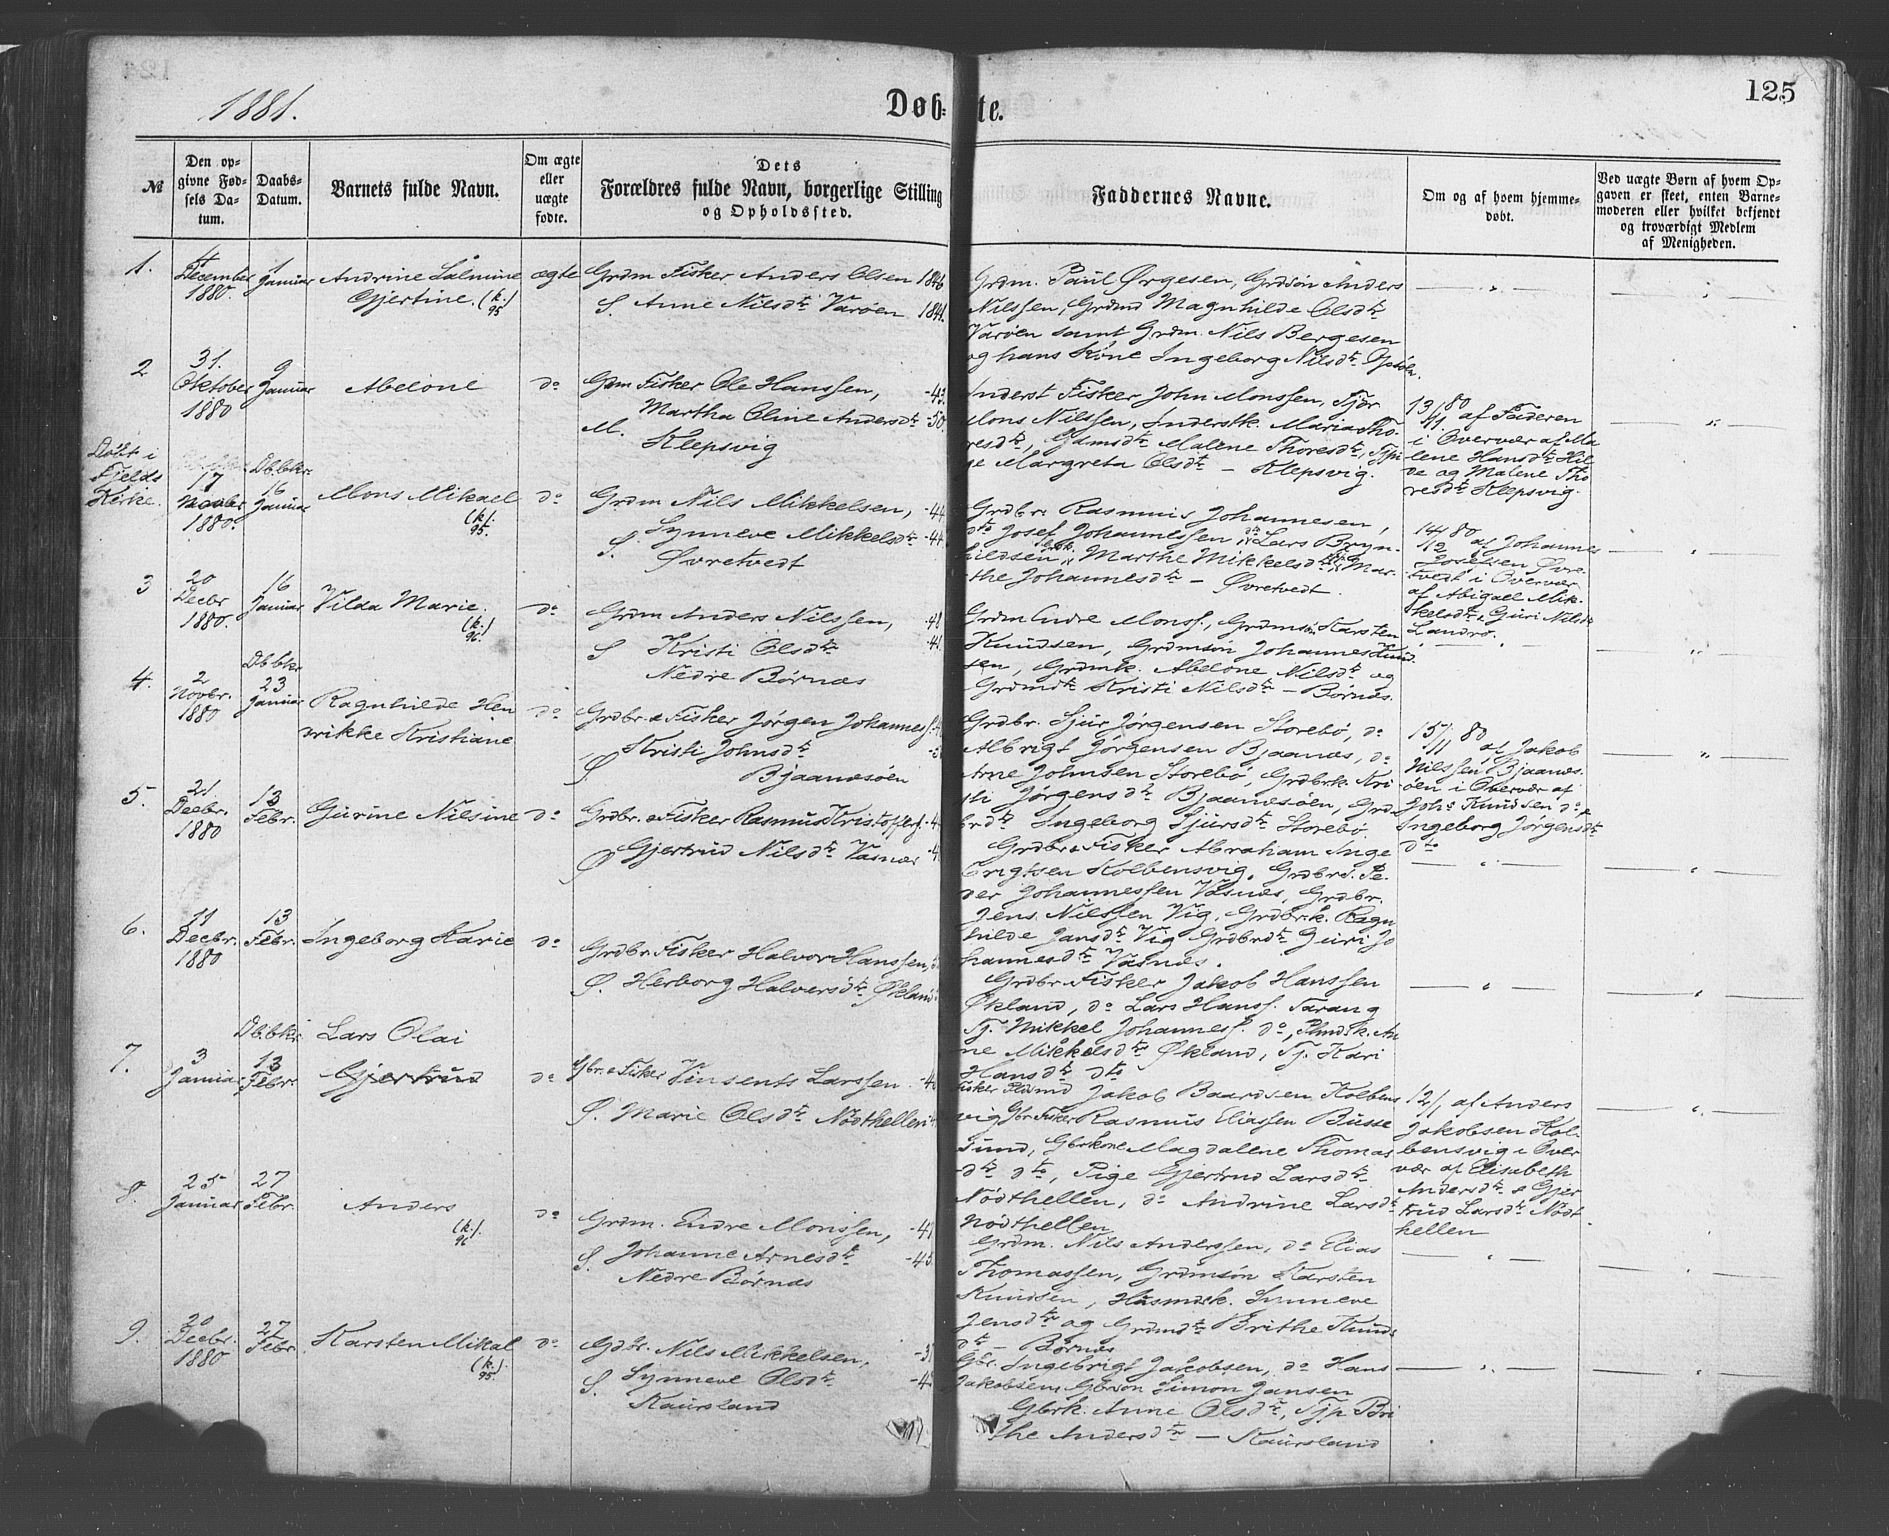 1881.
Døb-
te.
125
№
Den op-
givne Fød-
sels Da-
tum.
Daabs-
Datum.
Barnets fulde Navn.
Om ægte
eller
uægte
fødte.
Dets
Forældres fulde Navn, borgerlige Stilling
og Opholdssted.
Faddernes Navne.
Om og af hvem hjemme-
døbt.
Ved uægte Børn af hvem Op-
gaven er skeet, enten Barne-
moderen eller hvilket bekjendt
og troværdigt Medlem
af Menigheden.
1.
December
1880.
1
Januar
Andrine Salmine
Gjertine. (k.)
95
ægte
Grdm Fisker Anders Olsen 1846
S. Anne Nilsdtr Varøen 1841.
Grdm. Paul Ørgesen, Grdsøn Anders
Nilssen, Grdmd Magnhilde Olsdtr
Varøen samt Grdm. Nils Bergesen
og hans Kone Ingeborg Nilsdtr
2
31.
Oktober
1880
9
Januar
Abelone
do
Gdm Fisker Ole Hanssen, -43.
Martha Oline Andersdtr -50.
M. Klepsvig
Inderst Fisker John Monssen, Tjdr
Mons Nilssen, Inderstk. Maria Tho-
resdtr, Gdmsdtr Malene Thoresdtr, Tjpi
ge Margreta Olsdtr - Klepsvig.
13/11 80 af Faderen
i Overvær af Ma
lene Hansdtr Hil
de og Malene Tho
resdtr Klepsvig.
Døbt i
Fjelds
Kirke.
17
Novbr
1880.
Dbbkr.
16
Januar
Mons Mikael
(k.)
95.
do
Grdm Nils Mikkelsen, -44
Synneve Mikkelsdtr -44
S. Øvretvedt
Grdbr. Rasmus Johannesen,
do Josef Johannessen, do Lars Bryn-
hildsen, Marthe Mikkelsdtr, Mar-
the Johannesdtr - Øvretvedt.
14/12 80 af Johannes
Josefsen Øvre
tvedt i Overvær
af Abigael Mik-
kelsdtr & Guri Nilsdtr
Landrø.
3
20
Decbr
1880.
16
Januar
Vilda Marie.
(k.)
96.
do
Grdm Anders Nilssen, -48
S Kristi Olsdtr -41
Nedre Børnæs
Grdm Endre Monss., Grdmsøn Karsten
Knudsen, Grdmsøn Johannes Knud
sen, Grdmk. Abelone Nilsdtr og
Grdmdtr Kristi Nilsdtr - Børnæs.
4.
2
Novbr.
1880
Dbbkr
23
Januar
Ragnhilde Hen
rikke Kristiane
do
Grdbr. & Fisker Jørgen Johanness.
Kristi Johnsdtr
S. Bjaanæsøen
Grdbr. Sjur Jørgensen Storebø, do
Albrigt Jørgensen Bjaanæs, do
Arne Johnsen Storebø, Grdbrk. Kri
sti Jørgensdtr Bjaanæsøen, Grd
brdtr Ingeborg Sjursdtr Storebø.
15/11 80 af Jakob
Nilssen Bjaanæs
øen i Overvær af
Johs Knudsen do &
Ingeborg Jørgensdtr
dto
5.
21
Decbr.
1880
13
Febr.
Gurine Nilsine
do
Grdbr. & Fisker Rasmus Kristoffers.
S Gjertrud Nilsdtr Vasnæs
Grdbr. & Fisker Abraham Inge
brigtsen Kolbensvig, Grdbrs. Pe-
der Johannessen Vasnæs, Grdbr.
Jens Nilssen Vig, Grdbrk. Ragn
hilde Jansdtr Vig Grdbrdtr Guri Jo
hannesdtr Vasnæs.
6.
11
Decbr.
1880
13
Febr.
Ingeborg Karie
do
Grdbr. Fisker Halvor Hanssen,
S. Herborg Halversdtr Økland
Grdbr Fisker Jakob Hanssen
Økland, do Lars Hanss. Tarang
Tj. Mikkel Johanness. do, Plmdsk. An
ne Mikkelsdtr Økland, Tj. Kari
Hansdtr dto
7.
3
Januar
Dbbkr
13
Febr.
Lars Olai
Gjertrud
do
Gbr. & Fisker Vinsents Larssen
S. Marie Olsdtr Nødthellen
Fisker Plsmd Jakob Baardsen Kolbens
vig Gbr Fisker Rasmus Eliassen Busse
sund, Gbrkone Magdalene Thomas
dtr dto, Pige Gjertrud Larsdtr
Nødthellen, do Andrine Larsdtr
Nødthellen
12/1 af Anders
Jakobsen Kol-
bensvig i Over
vær af Elisabeth
Andersdtr & Gjer
trud Larsdtr Nødt
hellen
8.
25
Januar
27
Febr.
Anders
(k.)
96
do
Grdm. Endre Monssen,
S. Johanne Arnesdtr -45
Nedre Børnæs
Grdm. Nils Anderssen, do Elias
Thomassen, Grdmsøn Karsten
Knudsen, Husmdsk. Synneve
Jensdtr og Grdmdtr Brithe Knuds
dtr - Børnæs
9.
20
Decbr.
1880
27
Febr
Karsten Mikal
(k.)
95.
do
Gdbr. Nils Mikkelsen,
S. Synneve Olsdtr
Kaursland
Gbr. Ingebrigt Jakobsen, do Hans
Jakobsen, Gbrsøn Simon Jansen
Gbrk. Anne Olsdtr, Tjp Bri
the Andersdtr - Kaursland